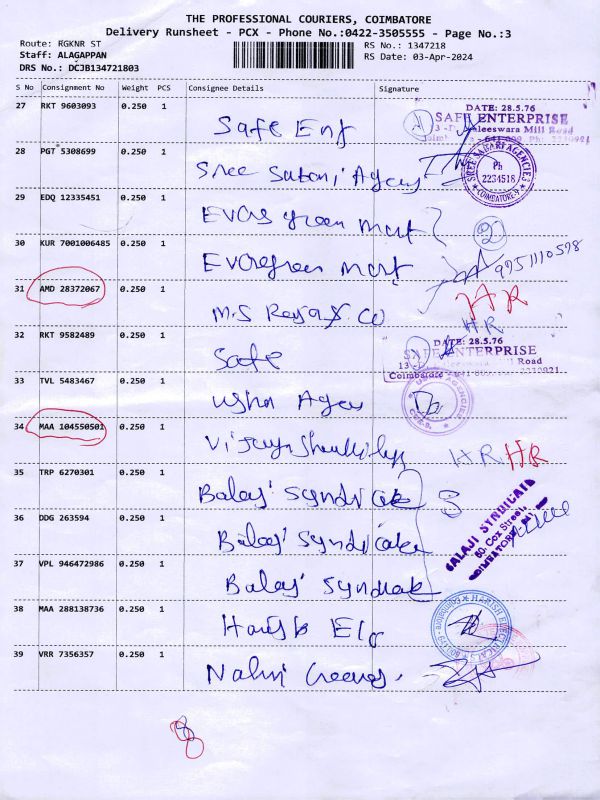 THE PROFESSIONAL COURIERS, COIMBATORE
Delivery Runsheet - PCX - Phone No.:0422-3505555 - Page No.:3
Route: RGKNR ST
Staff: ALAGAPPAN
DRS No.: DCJB134721803
RS No.: 1347218
RS Date: 03-Apr-2024
S No Consignment No Weight PCS Consignee Details Signature
27 RKT 9603093 0.250 1 Safe Ent
DATE: 28.5.76
SAFE ENTERPRISE
Mill Road
28 PGT 5308699 0.250 1 Sree Sabari Agency
SREE SABARI AGENCIES
Ph
2234518
COIMBATORE-9
29 EDQ 12335451 0.250 1 Evers green mart
2
30 KUR 7001006485 0.250 1 Evergreen mart
9951110598
31 AMD 28372067 0.250 1 M.S Raja & Co
HR
HR
32 RKT 9582489 0.250 1 Safe
DATE: 28.5.76
SAFE ENTERPRISE
Mill Road
Coimbatore - 641 009
33 TVL 5483467 0.250 1 Usha Agen
USHA AGENCIES
CBE-9
34 MAA 104550501 0.250 1
HR HR
35 TRP 6270301 0.250 1 Balaji Syndicate
3
BALAJI SYNDICATE
60, Cox Street,
COIMBATORE
36 DDG 263594 0.250 1 Balaji Syndicate
37 VPL 946472986 0.250 1 Balaji Syndicate
38 MAA 288138736 0.250 1 Harish Elc
HARISH ELECTRICALS
Coimbatore
39 VRR 7356357 0.250 1 Nalni
8